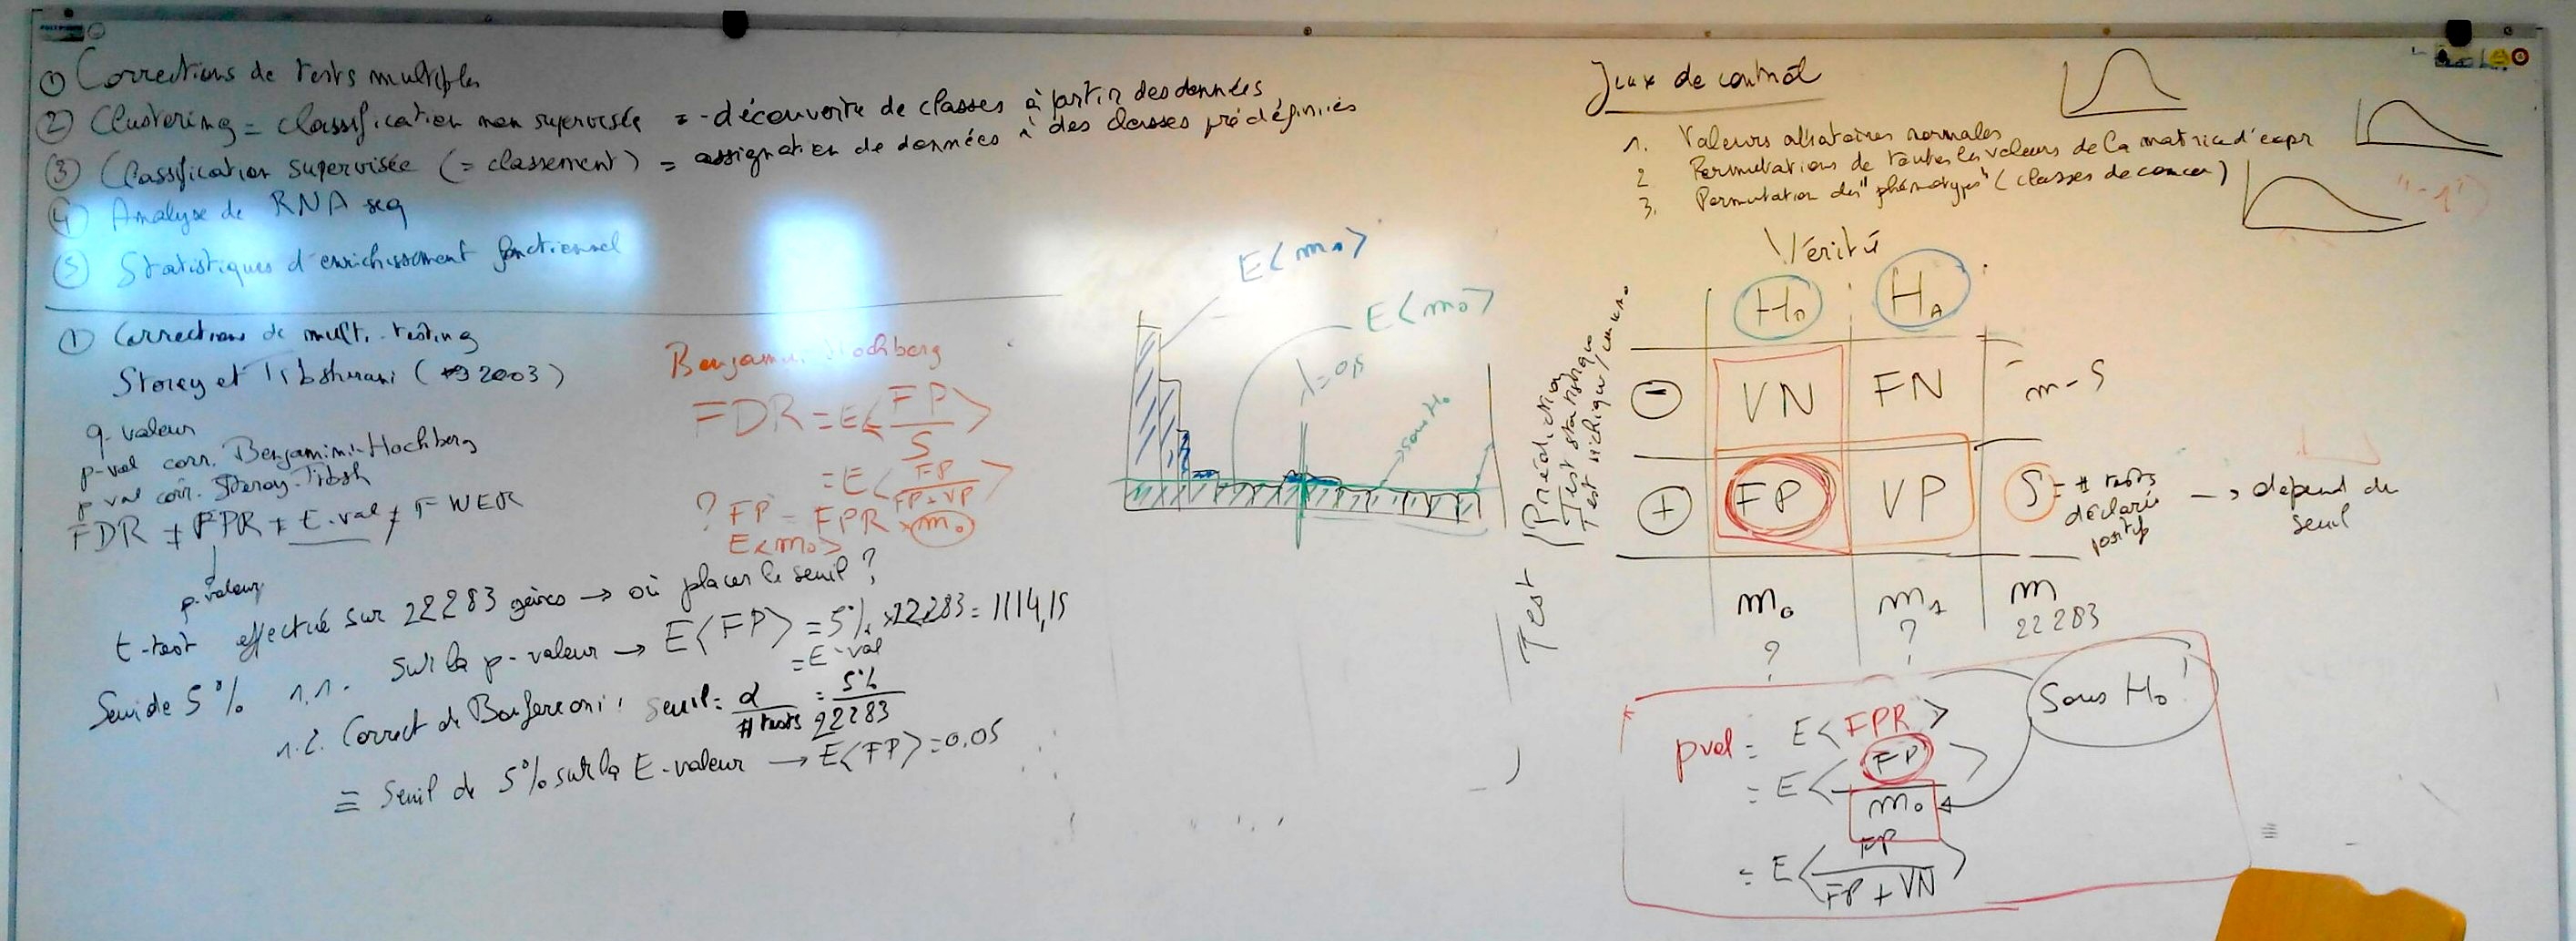 ① Corrections de tests multiples
② Clustering = classification non supervisée = découverte de classes à partir des données
③ Classification supervisée (= classement) = assignation de données à des classes prédéfinies
④ Analyse de RNA seq
⑤ Statistiques d'enrichissement fonctionnel
① Corrections de multi-testing
Storey et Tibshirani ( 2003)
q-valeur
p-val corr. Benjamini-Hochberg
p val corr. Storey-Tibsh
FDR ≠ FPR ≠ E.val ≠ FWER
p-valeur
t-test effectué sur 22283 gènes → où placer le seuil ?
Seuil de 5%
1.1. sur la p-valeur → E<FP> = 5% × 22283 = 1114,15
= E-val
1.2. Correct de Bonferroni : seuil = α / # tests = 5% / 22283
≡ Seuil de 5% sur la E-valeur → E<FP> = 0.05
Benjamini Hochberg
FDR = E<FP / S>
= E<FP / FP+VP>
? FP = FPR × m₀
E<m₀>
E<m₁>
E<m₀>
λ=0,5
sous H₀
Jeux de contrôl
1. Valeurs aléatoires normales
2 Permutations de toutes les valeurs de la matrice d'expr
3. Permutation des "phénotypes" (classes de cancer)
Vérité
H₀ H_A
Test
Prédiction
Test statistique
⊖ VN FN m-S
⊕ FP VP S = # tests déclarés positifs → dépend de seuil
m₀ m₁ m
? ? 22283
?
Sous H₀ !
pval = E<FPR>
= E<FP / m₀>
= E<FP / FP + VN>